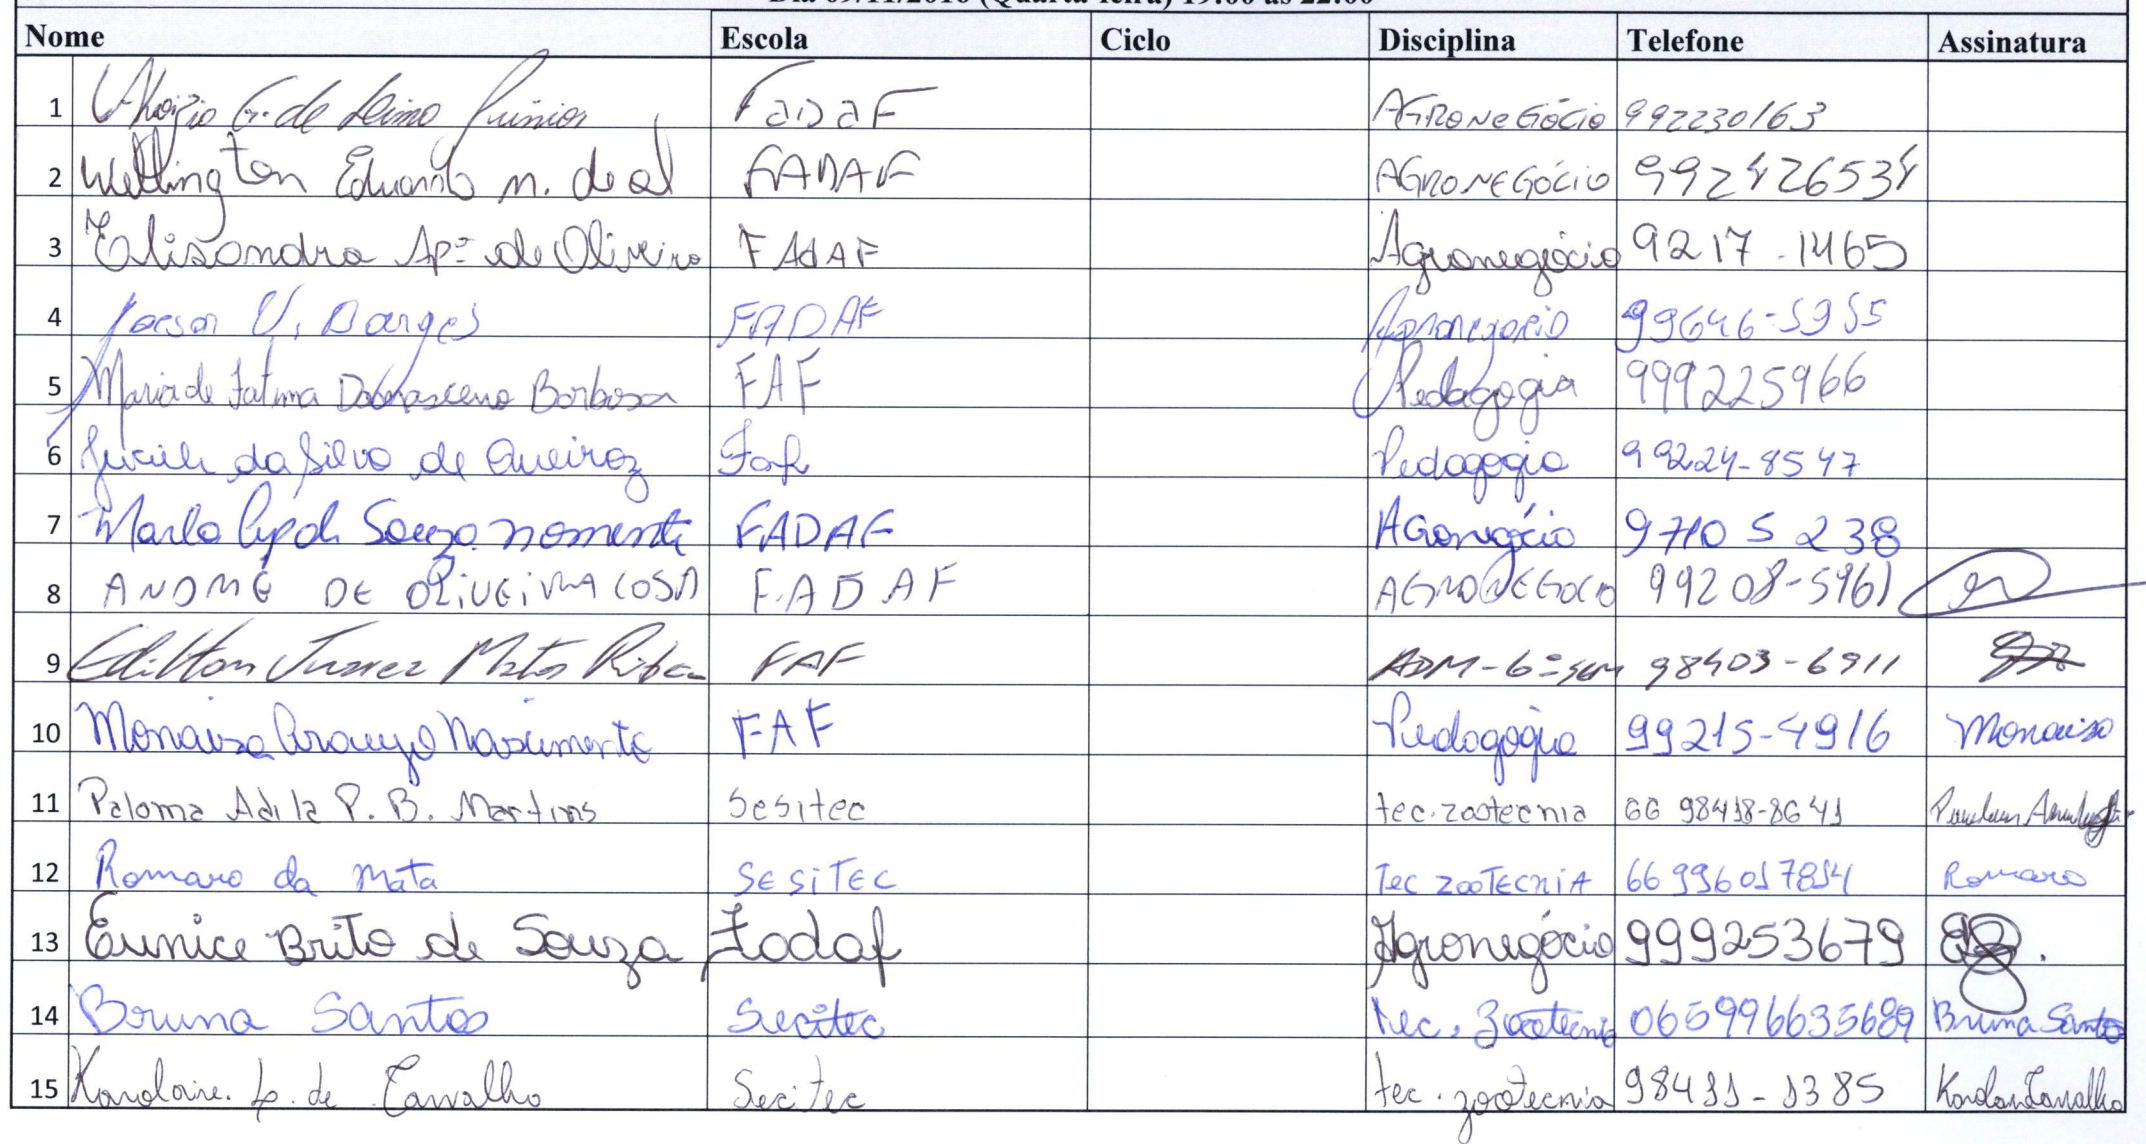 Dia 09/11/2016 (Quarta-feira) 19:00 às 22:00
Nome Escola Ciclo Disciplina Telefone Assinatura
1 G. de Lima Júnior FADAF AGRONEGÓCIO 992230163
2 Wellington Eduardo M. de FADAF AGRONEGÓCIO 992426534
3 Elisandra Apª de Oliveira FAdAF Agronegócio 9217.1465
4 V. Borges FADAF Agronegócio 99646-5955
5 Maria de Fatima Damasceno Barbosa FAF Pedagogia 999225966
6 da Silva de Queiroz Faf Pedagogia 99224-8547
7 Souza FADAF 97105238
8 ANDRÉ DE OLIVEIRA COSTA FADAF AGRONEGOCIO 99208-5961
9 Edilton Juarez Matos FAF ADM-6º sem 98403-6911
10 Monaisa Araujo Nascimento FAF Pedagogia 99215-4916 Monaisa
11 Paloma Adila P. B. Martins Sesitec tec. zootecnia 66 98418-8641
12 Romaro da Mata SESiTEC Tec ZOOTECniA 66 996017814 Romaro
13 Eunice Brito de Souza Fadaf Agronegócio 999253679
14 Bruna Santos Secitec Tec. Zootecnia Bruna Santos
15 de Carvalho Secitec tec. zootecnia 98411-1385